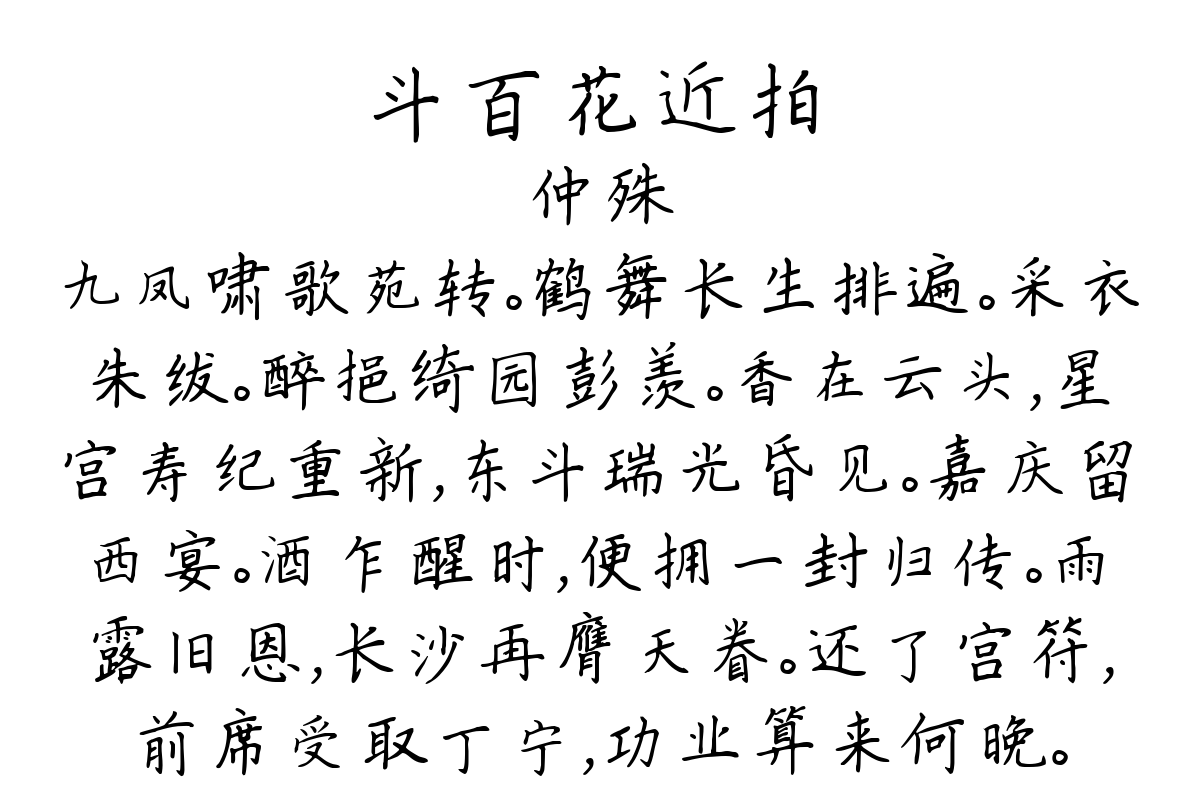 斗百花近拍
仲殊
九凤啸歌苑转。鹤舞长生排遍。采衣
朱绂。醉挹绮园彭羡。香在云头,星
宫寿纪重新,东斗瑞光昏见。嘉庆留
西宴。酒乍醒时,便拥一封归传。雨
露旧恩,长沙再膺天眷。还了宫符,
前席受取丁宁,功业算来何晚。